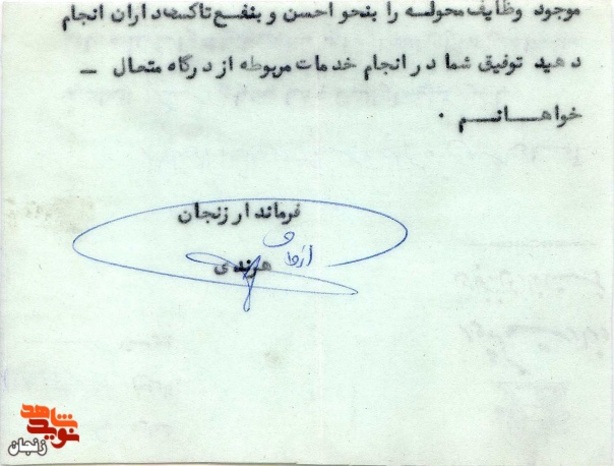 موجود وظایف محوله را بنحو احسن و بنفع تاکسیداران انجام
دهید توفیق شما در انجام خدمات مربوطه از درگاه متعال –
خواهانم .
فرماندار زنجان
هرندی
نوید شاهد
زنجان